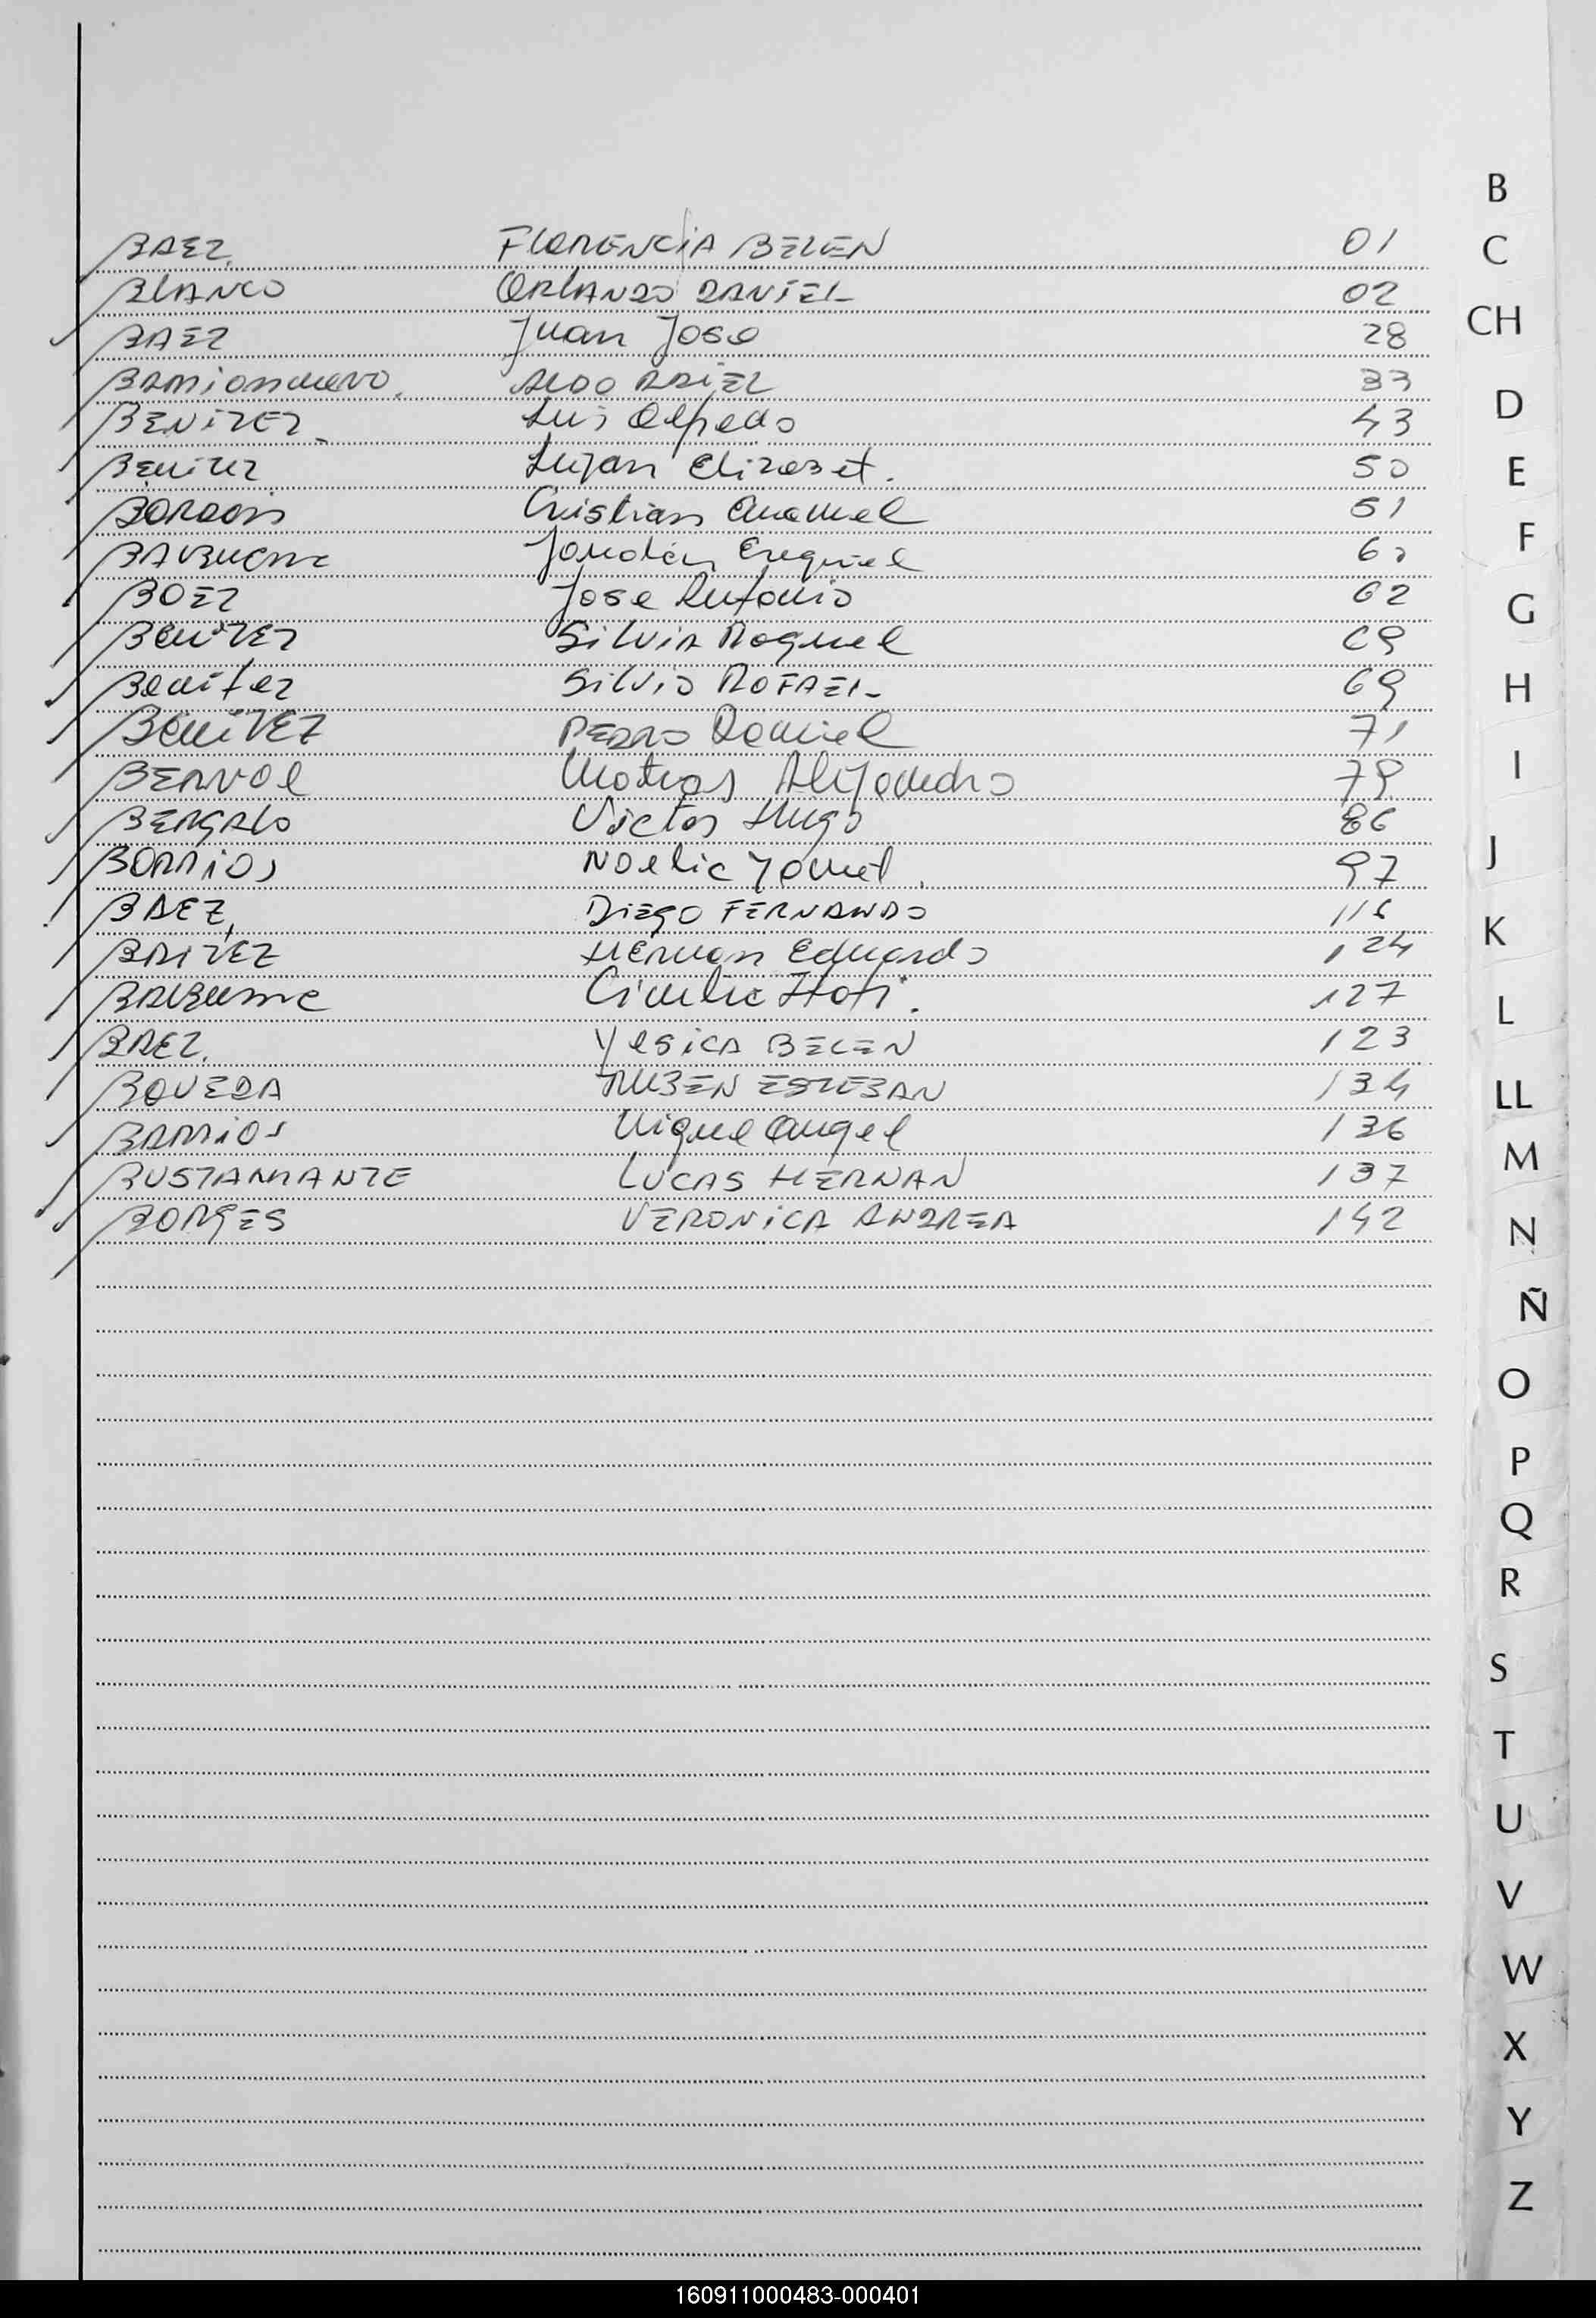 BAEZ. FLORENCIA BELEN 01
BLANCO ORLANDO DANIEL 02
BAEZ Juan Jose 28
BAMIONUEVO. ALDO ARIEL 33
BENITEZ Luis Alfredo 43
Benitez Lujan Elizabet. 50
BORDON Cristian Emanuel 51
BAUBUENE Jonatan Ezequiel
BOEZ Jose Antonio 62
BENITEZ Silvia Raquel 69
Benitez Silvio ROFAEL 69
BENITEZ PEDRO Daniel 71
BERNOL Matias Alejandro 79
BERGALO Victor Hugo 86
BORRIOS Noelia Yamet. 97
BAEZ, DIEGO FERNANDO 116
BRITEZ Hernan Eduardo 124
127
BAEZ. YESICA BELEN 123
BOVEDA RUBEN ESTEBAN 134
BARRIOS Miguel Angel 136
BUSTAMANTE LUCAS HERNAN 137
BORGES VERONICA ANDREA 142
B
C
CH
D
E
F
G
H
I
J
K
L
LL
M
N
Ñ
O
P
Q
R
S
T
U
V
W
X
Y
Z
160911000483-000401